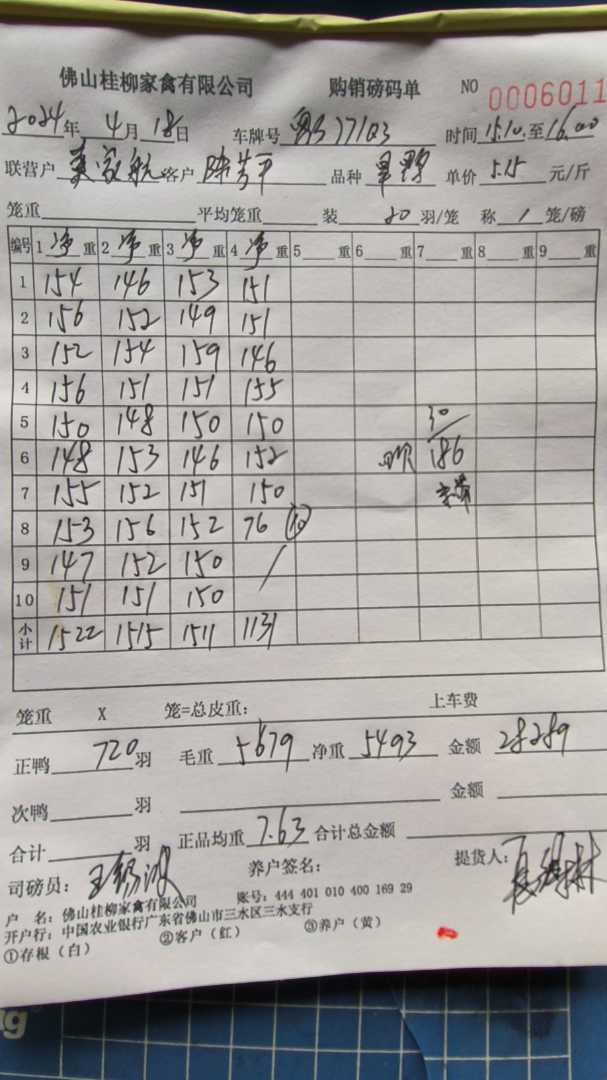 佛山桂柳家禽有限公司 购销磅码单 NO 0006011
2024年 4月 18日 车牌号 77103 时间 15.10.至16.00
联营户 客户 陈芳平 品种 单价 5.15 元/斤
笼重 平均笼重 装 20 羽/笼 称 1 笼/磅
编号 1 净 重 2 净 重 3 净 重 4 净 重 5 重 6 重 7 重 8 重 9 重
1 154 146 153 151
2 156 152 149 151
3 152 154 159 146
4 156 151 151 155
5 150 148 150 150 30
6 148 153 146 152 186
7 155 152 151 150
8 153 156 152 76 10
9 147 152 150 /
10 151 151 150
小计 1522 1515 1511 1131
笼重 X 笼=总皮重: 上车费
正鸭 720 羽 毛重 5679 净重 5493 金额 28289
次鸭 羽 金额
合计 羽 正品均重 7.63 合计总金额
司磅员: 养户签名: 提货人:
户 名: 佛山桂柳家禽有限公司 账号: 444 401 010 400 169 29
开户行: 中国农业银行广东省佛山市三水区三水支行
①存根（白） ②客户（红） ③养户（黄）